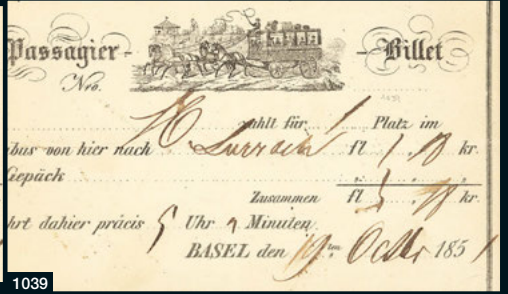 Passagier - Billet
Nro.
1039
H. zahlt für 1 Platz im
bus von hier nach Lörrach fl kr.
Gepäck
Zusammen fl kr.
hrt dahier präcis 5 Uhr Minuten.
BASEL den 19ten Octbr 1851
1039